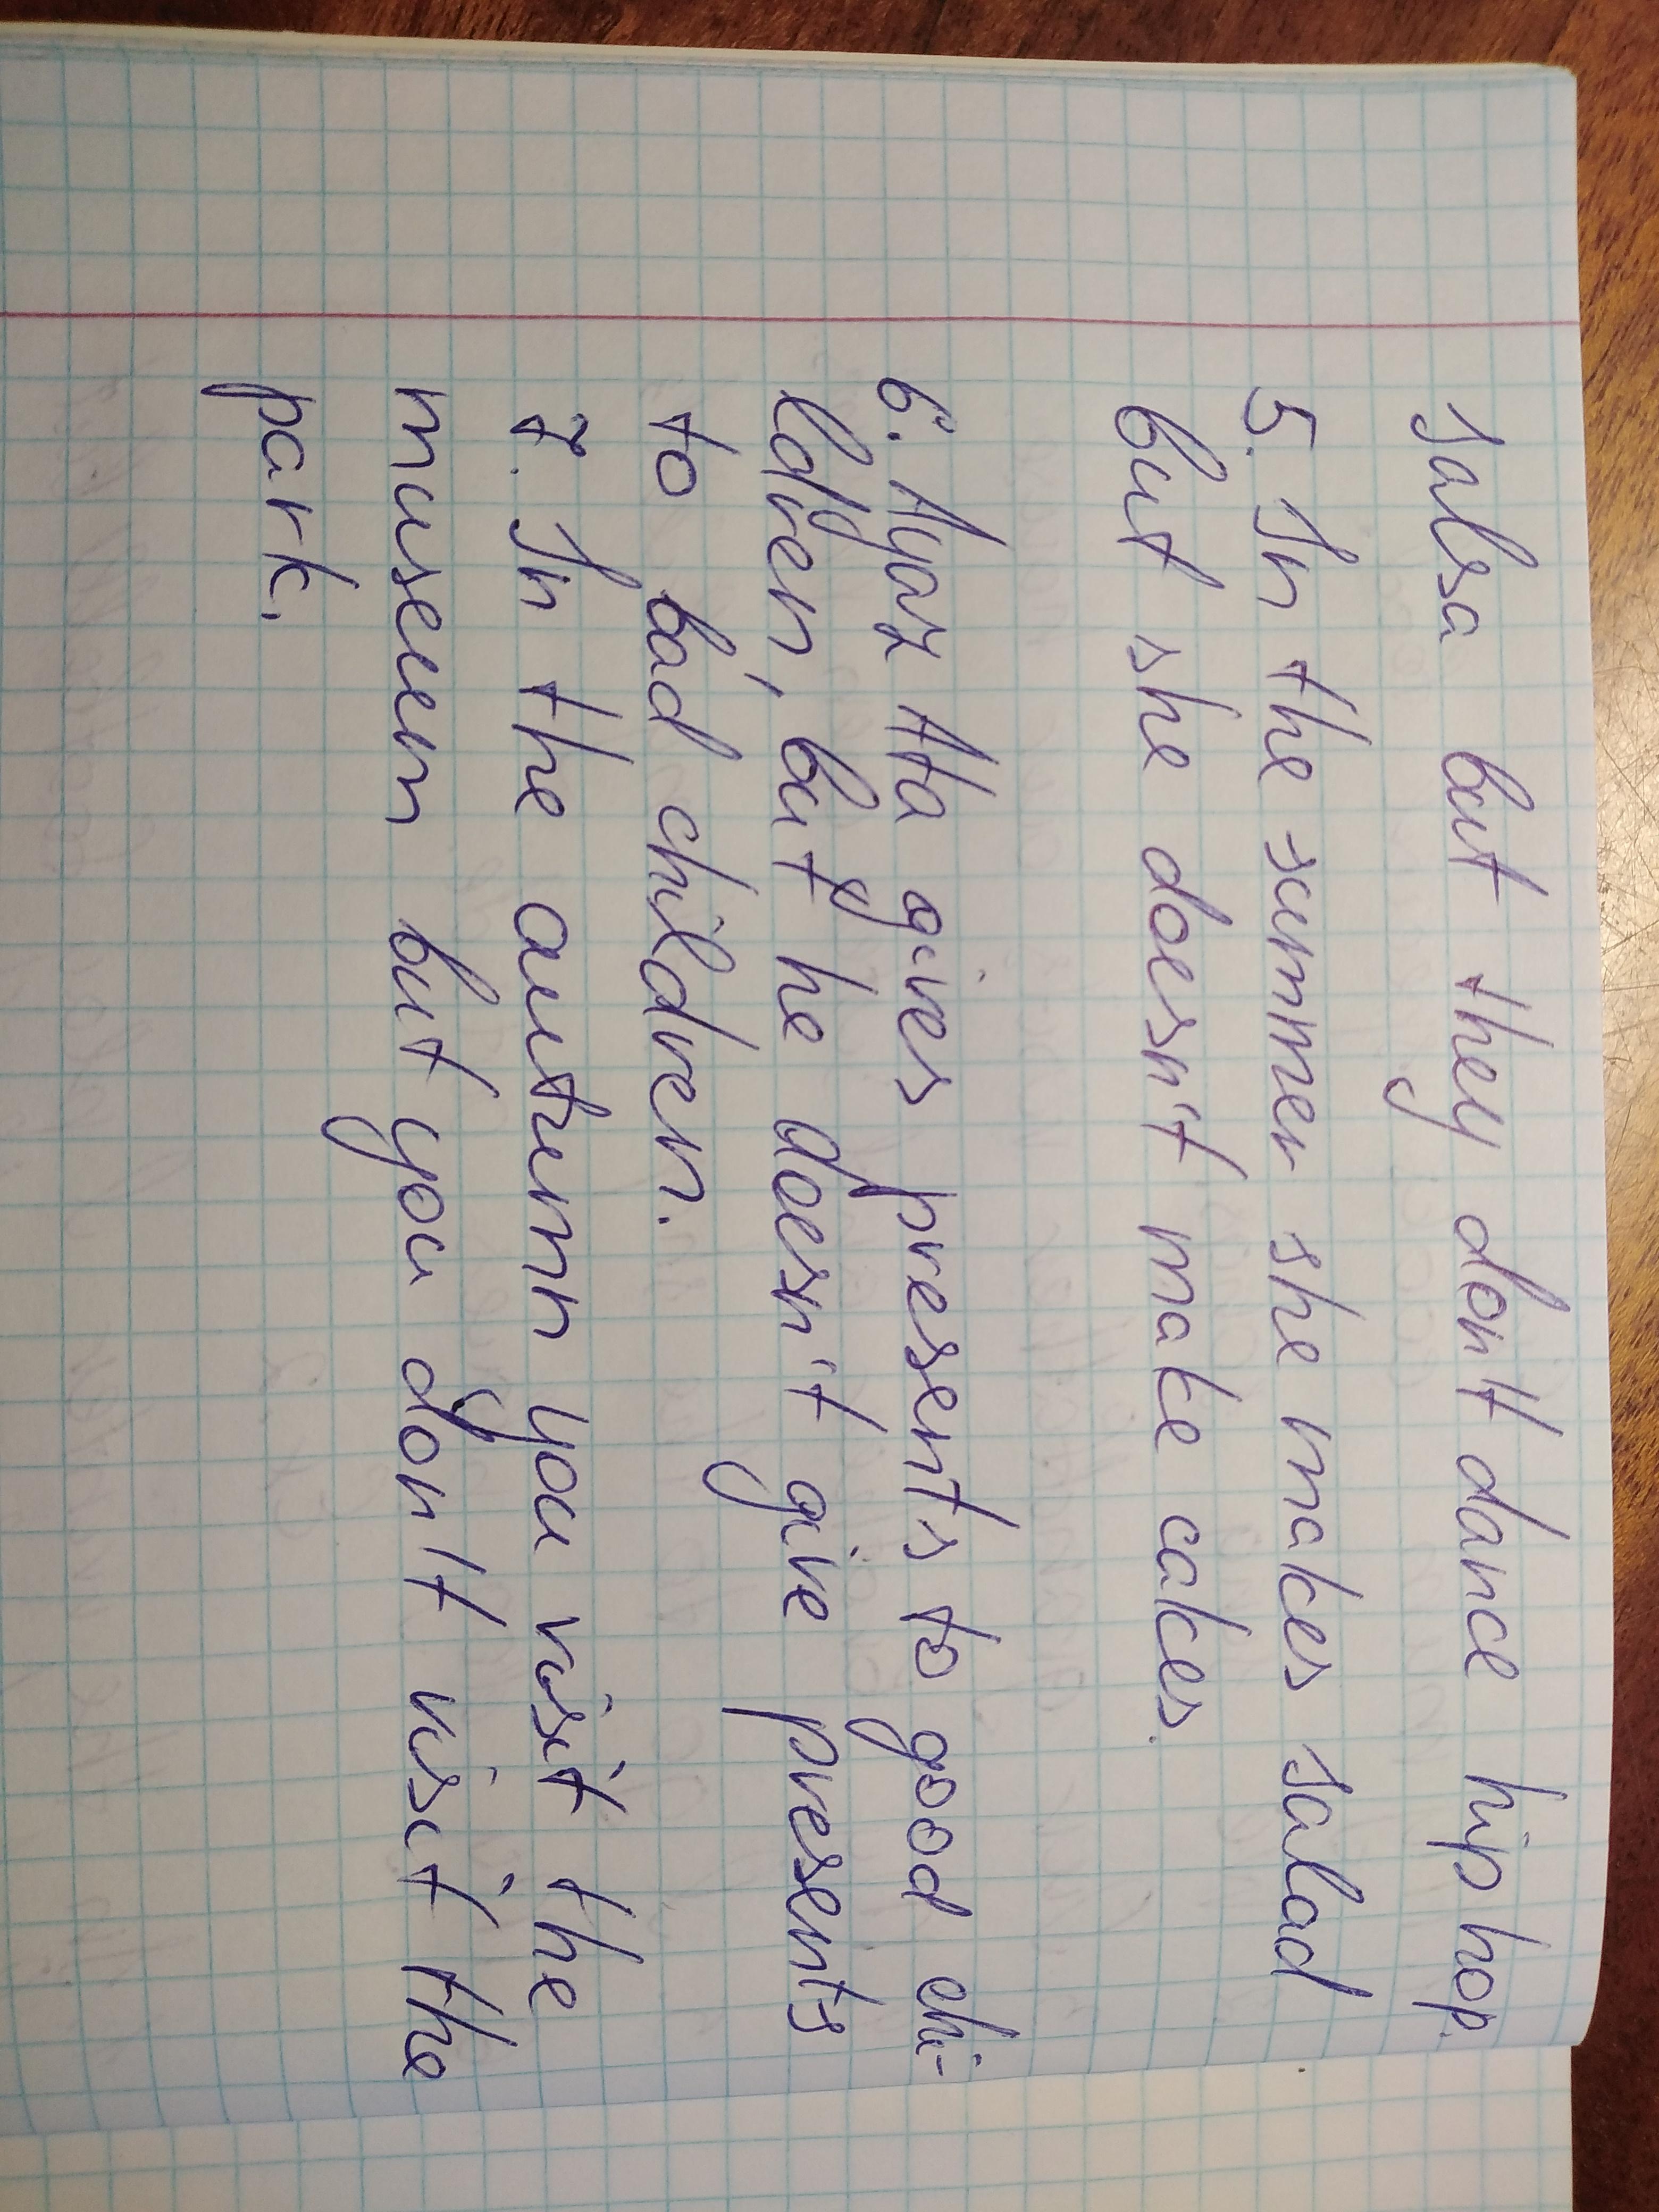 salsa but they don't dance hip hop.
5. In the summer she makes salad
but she doesn't make cakes.
6. Ayaz Ata gives presents to good chi-
ldren, but he doesn't give presents
to bad children.
7. In the autumn you visit the
museum but you don't visit the
park.